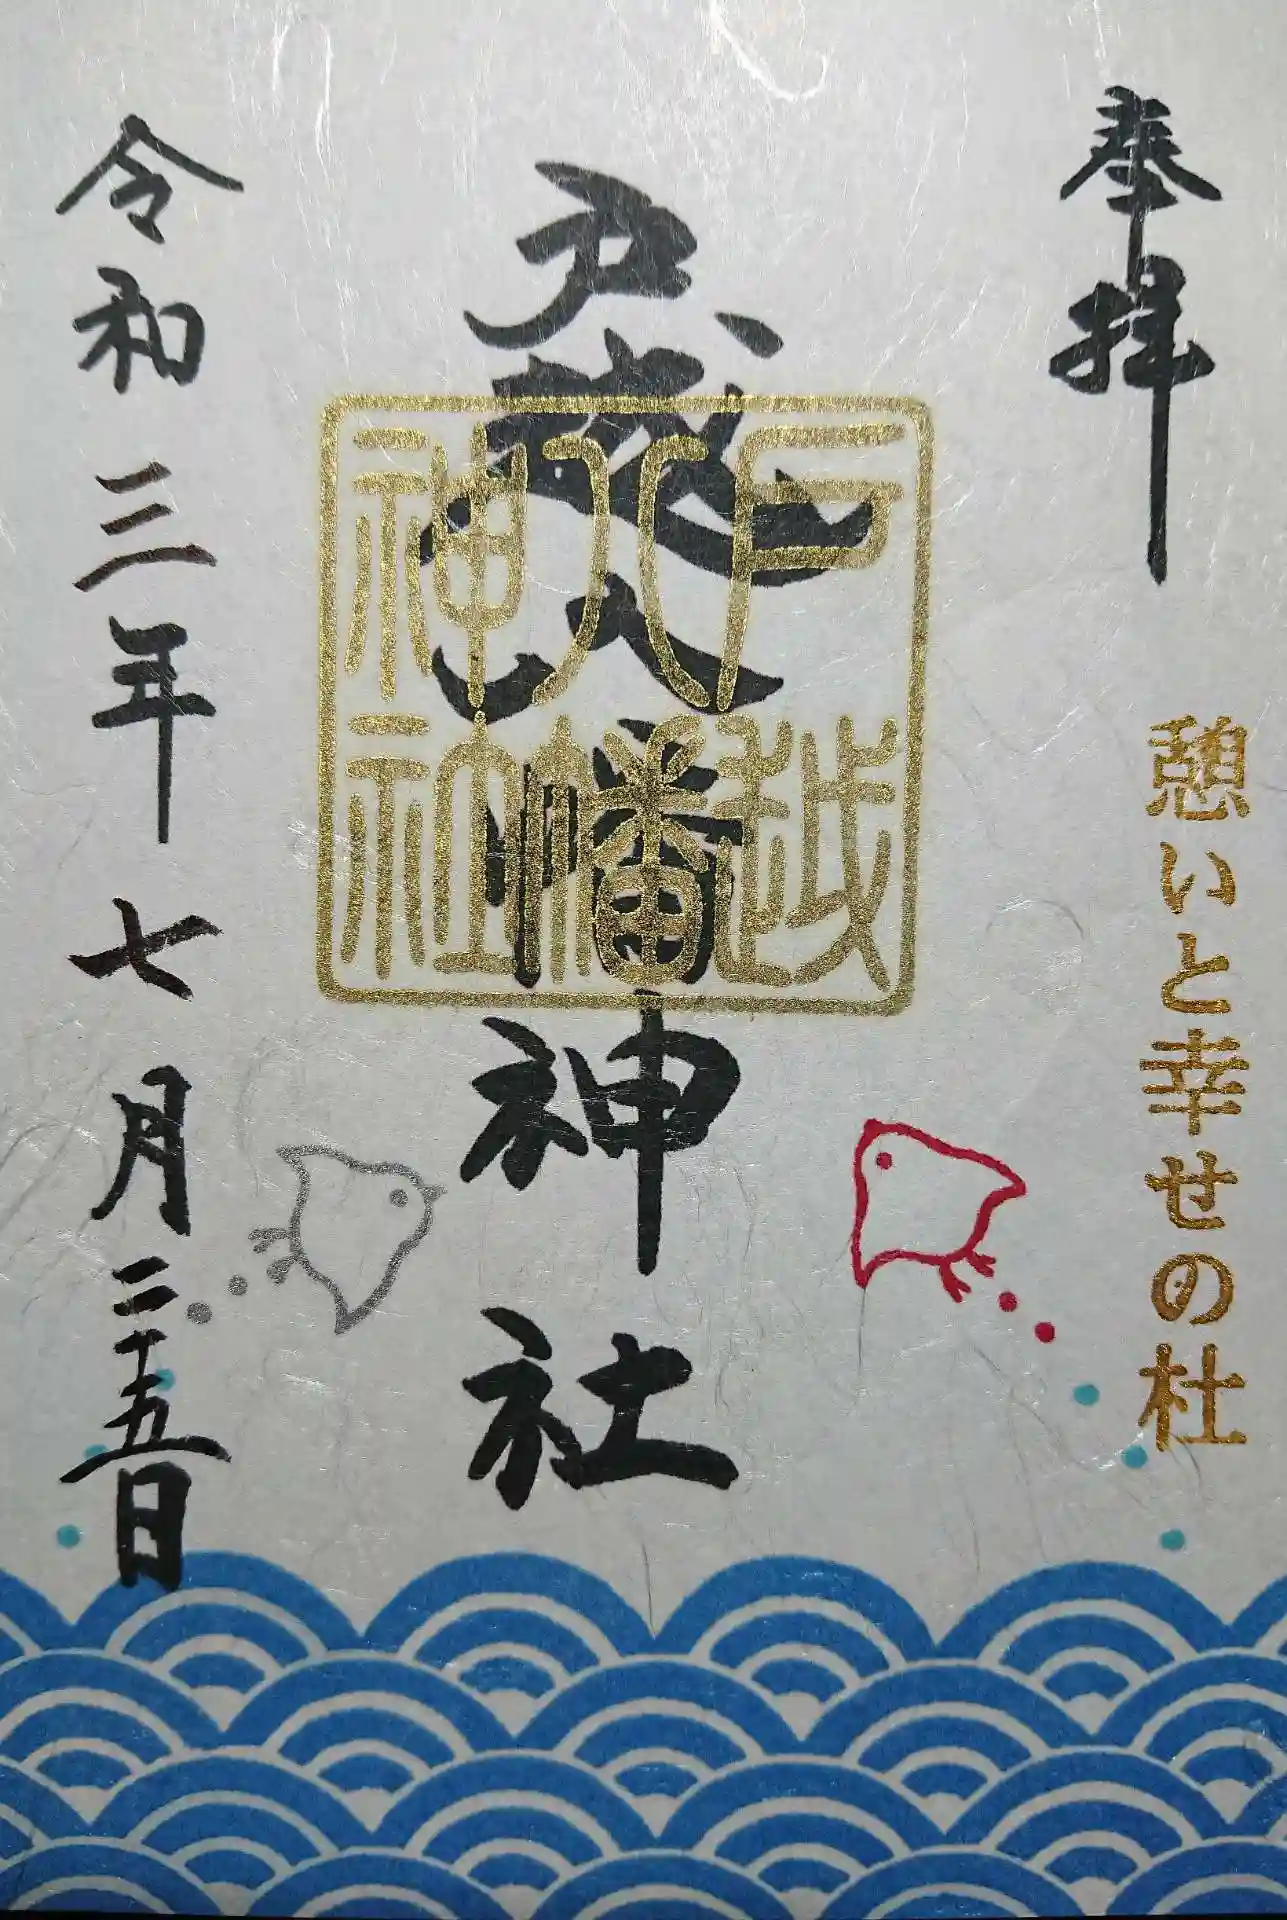 奉拝
憩いと幸せの杜
戸越八幡神社
戸越
八幡
神社
令和三年七月二十五日